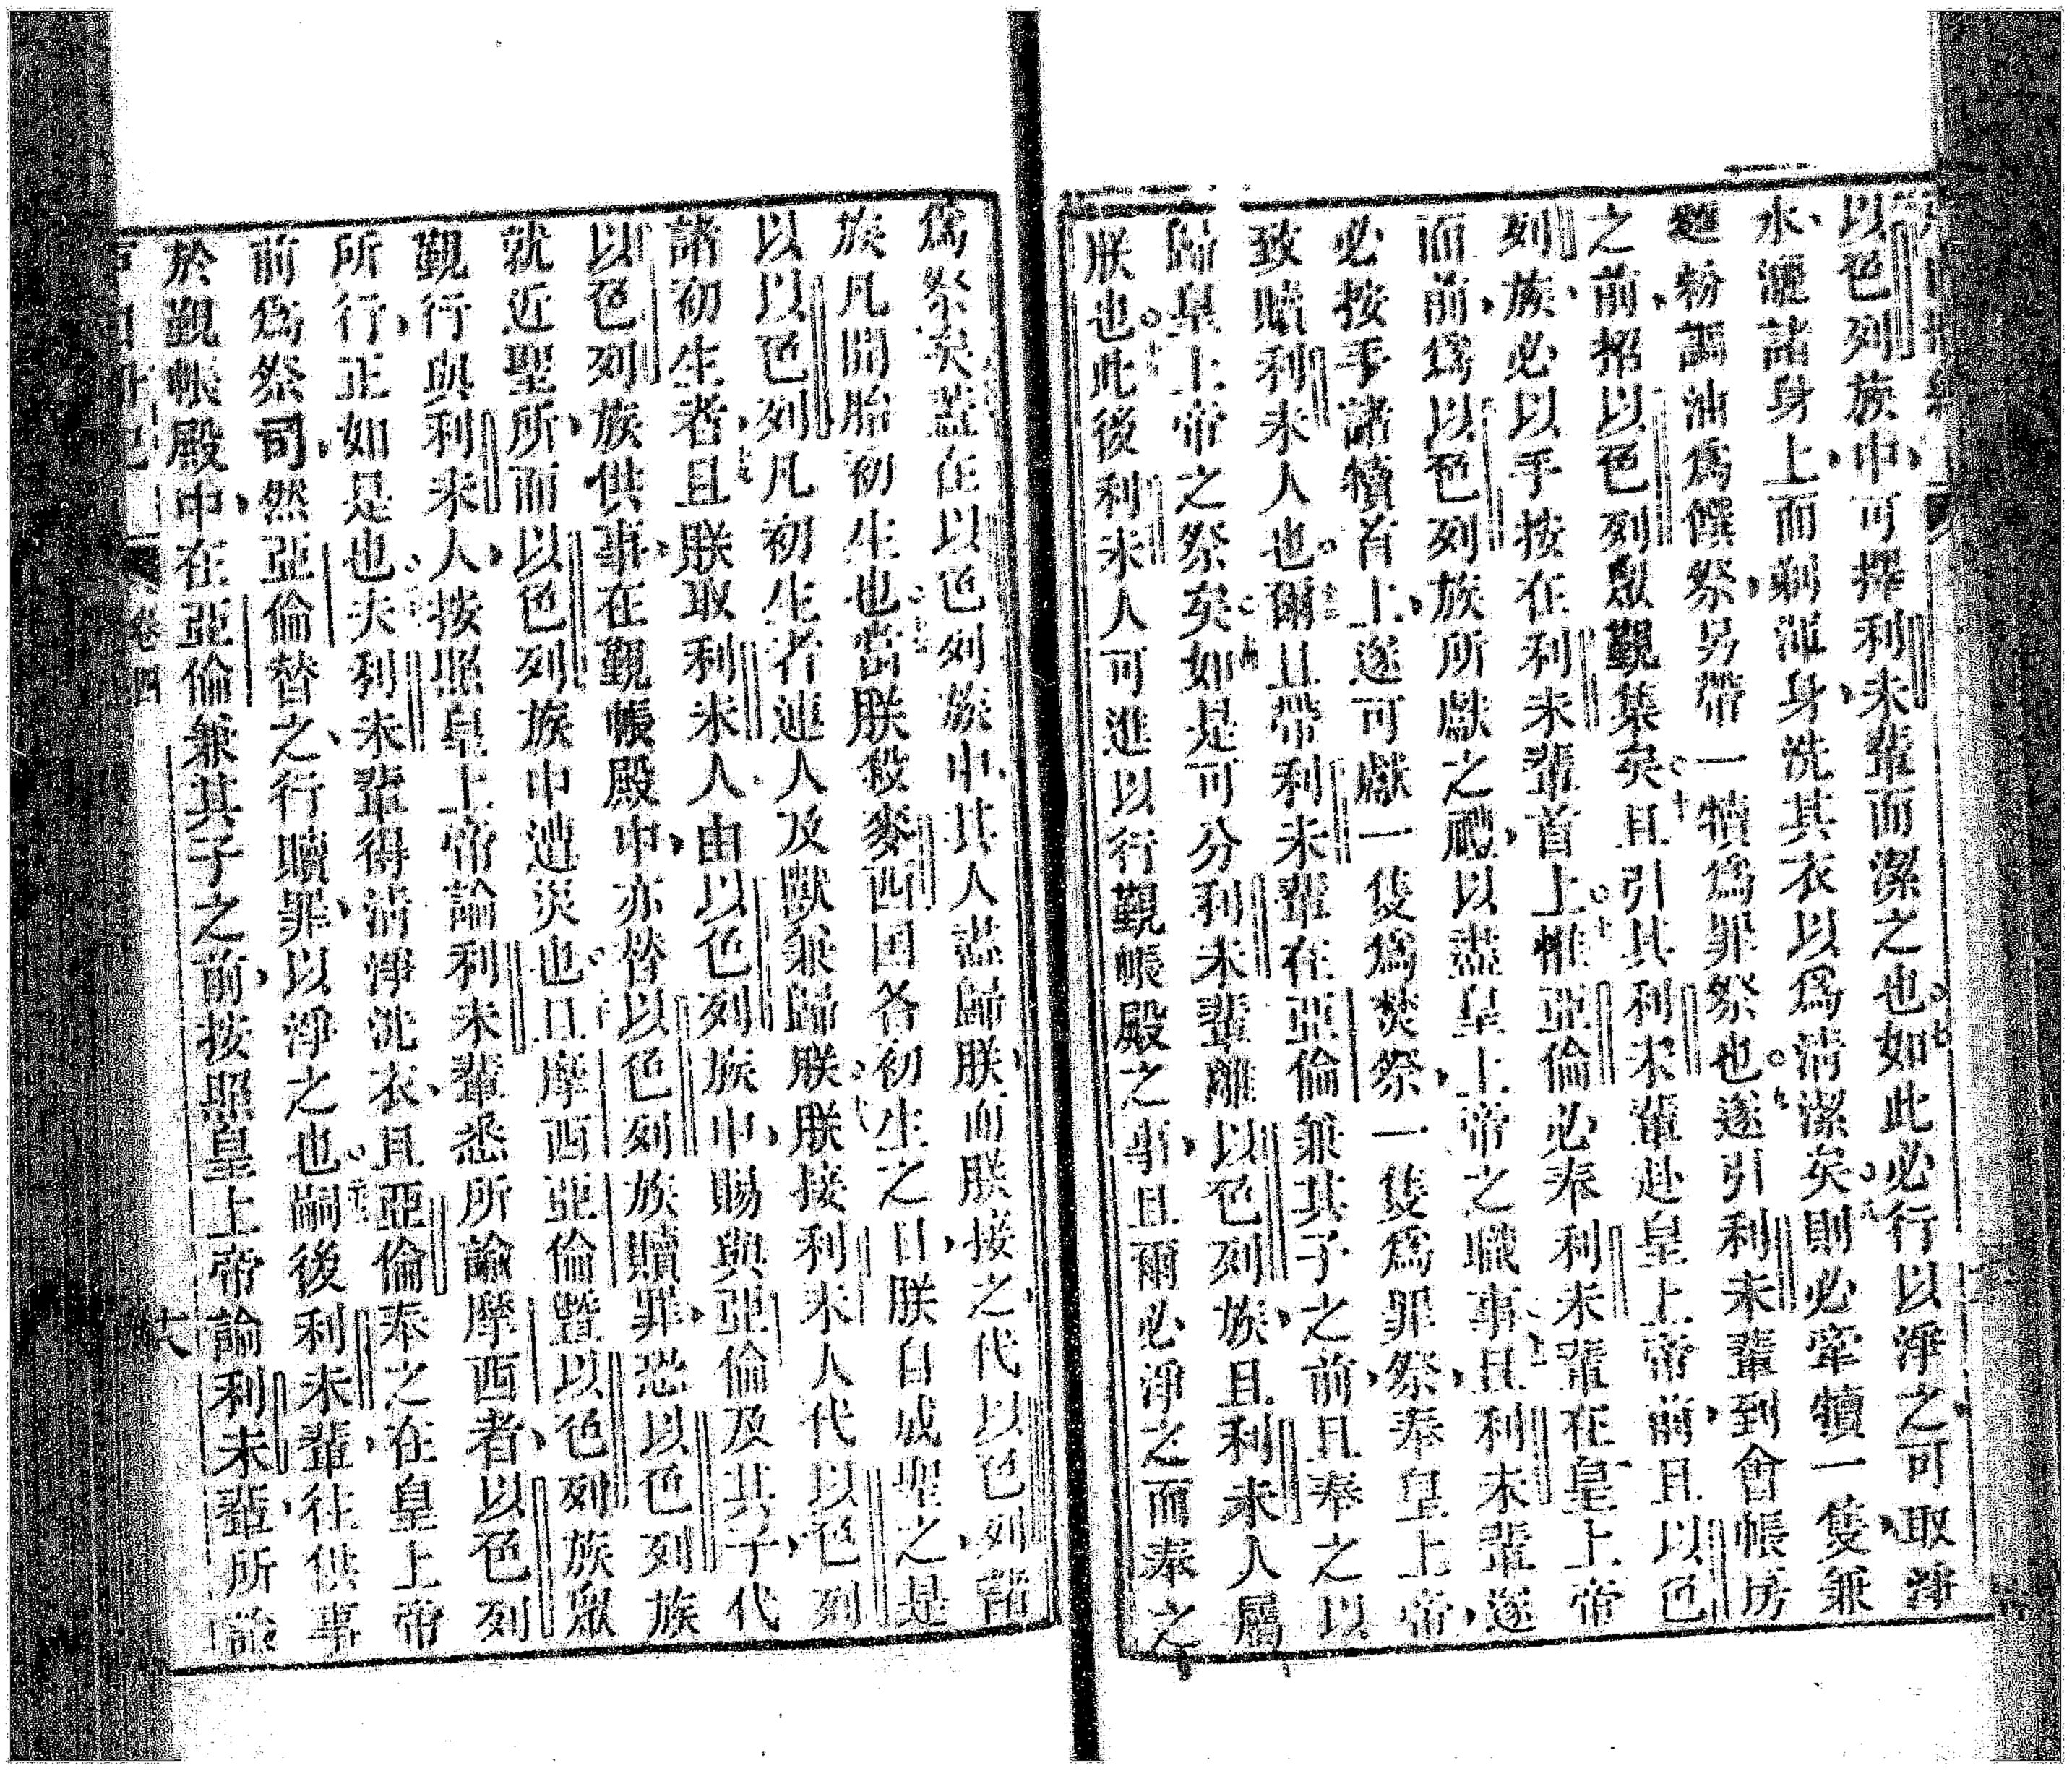 以色列族中、可擇利未輩而潔之也。七如此必行以淨之、可取淨
水、灑諸身上、而剃渾身、洗其衣以為清潔矣。八則必牽犢一隻、兼
麵粉調油為饌祭、另帶一犢為罪祭也。九遂引利未輩到會帳房
之前、招以色列眾覲集矣。十且引其利未輩赴皇上帝前、且以色
列族、必以手按在利未輩首上。十一惟亞倫必奉利未輩在皇上帝
面前、為以色列族所獻之禮、以盡皇上帝之職事。十二且利未輩遂
必按手諸犢首上、遂可獻一隻為焚祭、一隻為罪祭、奉皇上帝、
致贖利未人也。十三爾且帶利未輩在亞倫兼其子之前、且奉之以
歸皇上帝之祭矣。十四如是可分利未輩離以色列族、且利未人屬
朕也。十五此後利未人可進以行覲帳殿之事、且爾必淨之而奉之
為祭矣。蓋在以色列族中、其人盡歸朕、而朕接之、代以色列諸
族凡開胎初生也。十七當朕殺麥西國各初生之日、朕自成聖之、是
以以色列凡初生者連人及獸兼歸朕。十八朕接利未人代以色列
諸初生者、十九且朕取利未人、由以色列族中、賜與亞倫及其子、代
以色列族供事、在覲帳殿中、亦替以色列族贖罪、恐以色列族
就近聖所、而以色列族中遭災也。二十且摩西亞倫暨以色列族眾
覲行與利未人、按照皇上帝諭利未輩悉所諭摩西者、以色列
所行、正如是也。夫利未輩得清淨洗衣、且亞倫奉之在皇上帝
前為祭司、然亞倫替之、行贖罪、以淨之也。嗣後利未輩、往供事
於覲帳殿中、在亞倫兼其子之前、按照皇上帝諭利未輩、所諭
卷四
十八